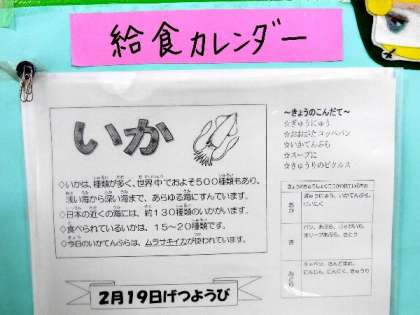 給食カレンダー
いか
◇いかは、種類が多く、世界中でおよそ500種類もあり、
浅い海から深い海まで、あらゆる海にすんでいます。
◇日本の近くの海には、約130種類のいかがいます。
◇食べられているいかは、15～20種類です。
◇今日のいかてんぷらは、ムラサキイカが使われています。
2月19日げつようび
～きょうのこんだて～
☆ぎゅうにゅう
☆おおがたコッペパン
☆いかてんぷら
☆スープに
☆きゅうりのピクルス
あか
ぎゅうにゅう、いかてんぷら、
にんにく
きいろ
パン、あぶら、じゃがいも、
オリーブあぶら、さとう
みどり
にんじん、にんにく、きゅうり